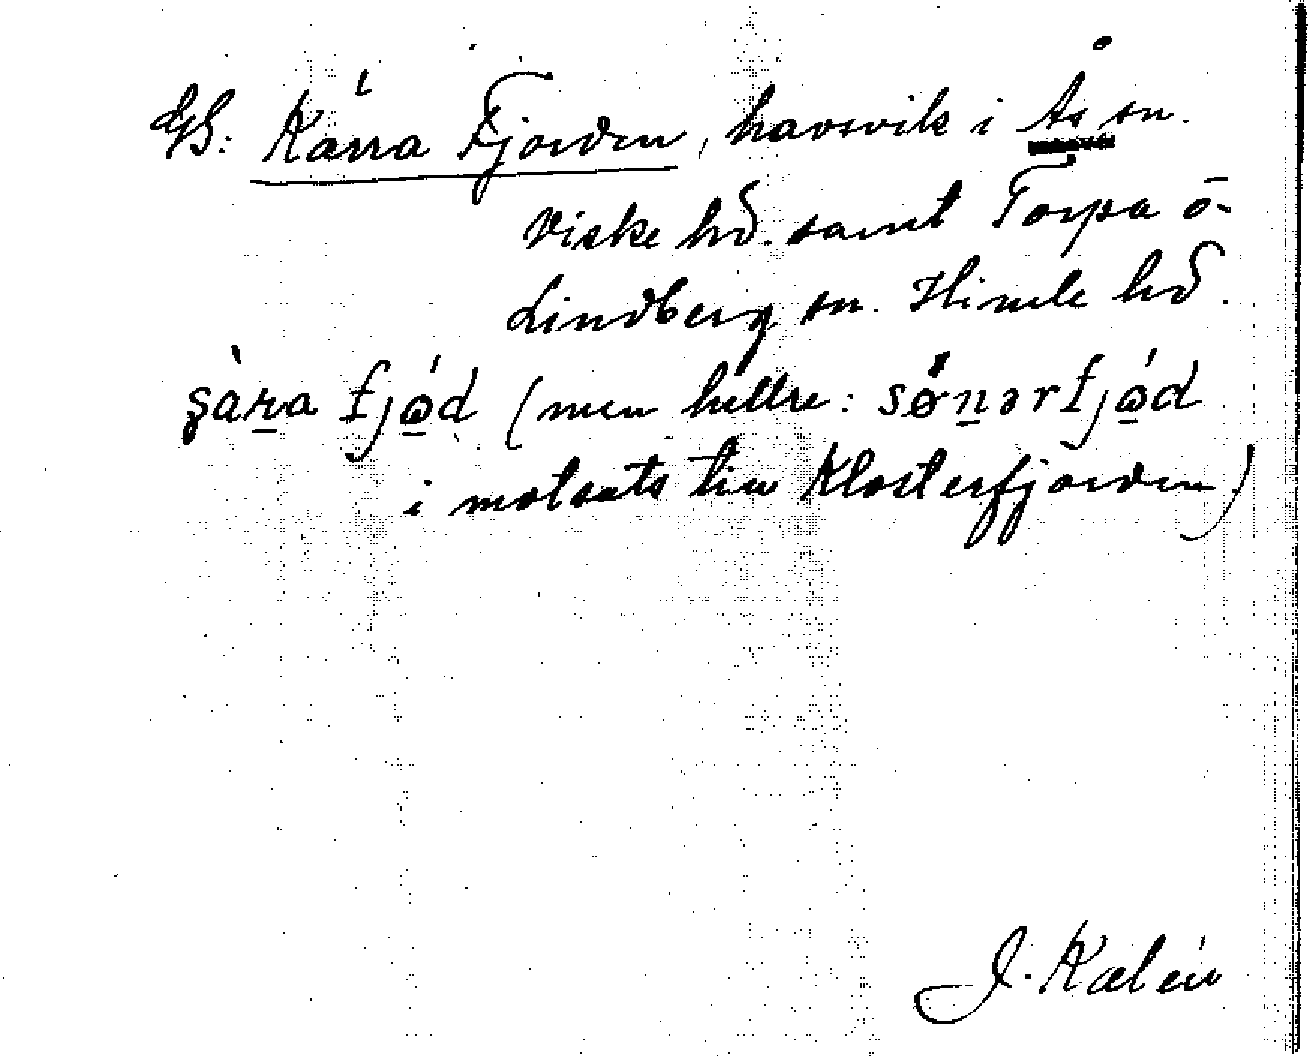 GS: Kärra Fjorden, havsvik i Ås sn.
Viske hd. samt Torpa o-
Lindberg sn. Himle hd.
fjǿd (men hellre:
i motsats till Klosterfjorden)
J. Kalén